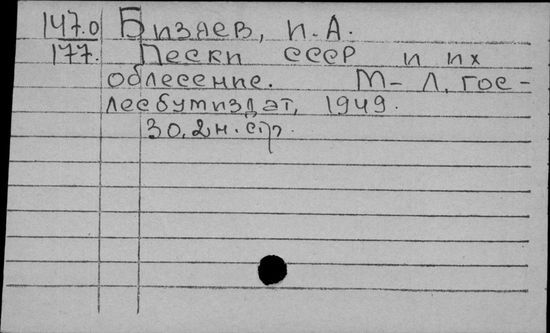 147.0 Бизяев, И.А.
177. Пески СССР и их
облесение. М-Л, Гос-
лесбумиздат, 1949.
30,2н.стр.